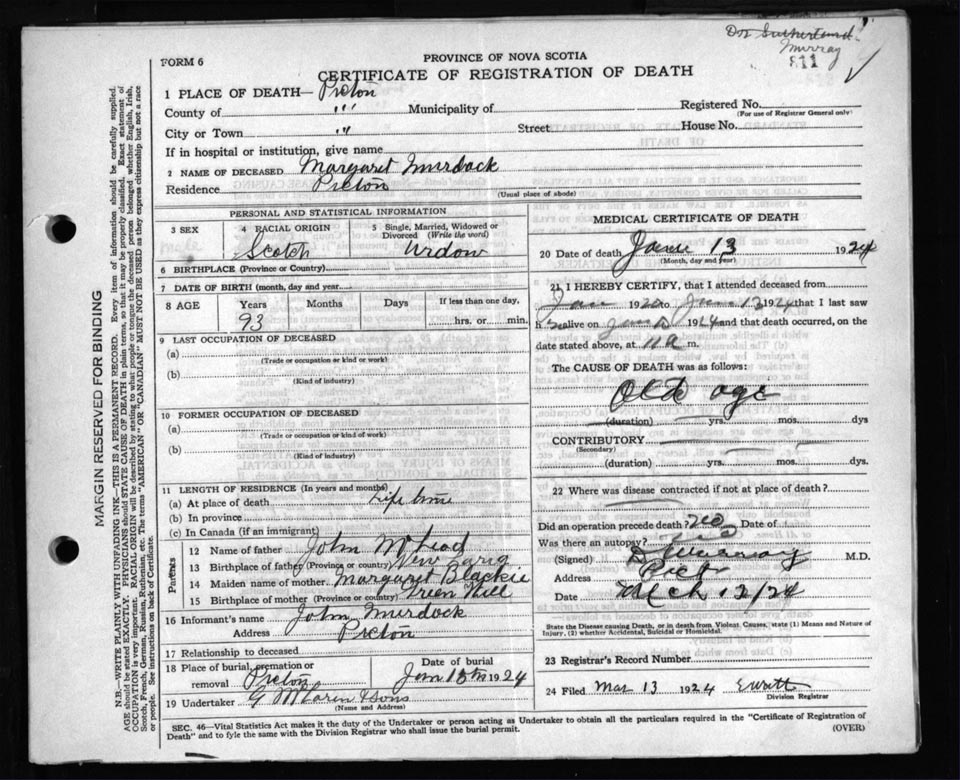 Dr Sutherland
Murray
811
FORM 6
PROVINCE OF NOVA SCOTIA
CERTIFICATE OF REGISTRATION OF DEATH
1 PLACE OF DEATH— Pictou
County of " Municipality of Registered No.
(For use of Registrar General only)
City or Town " Street House No.
If in hospital or institution, give name
2 NAME OF DECEASED Margaret Murdock
Residence Pictou
(Usual place of abode)
PERSONAL AND STATISTICAL INFORMATION
3 SEX
4 RACIAL ORIGIN
Scotch
5 Single, Married, Widowed or
Divorced (Write the word)
Widow
6 BIRTHPLACE (Province or Country)
7 DATE OF BIRTH (month, day and year)
8 AGE Years Months Days If less than one day,
93 hrs. or min.
9 LAST OCCUPATION OF DECEASED
(a)
(Trade or occupation or kind or work)
(b)
(Kind of industry)
10 FORMER OCCUPATION OF DECEASED
(a)
(Trade or occupation or kind of work)
(b)
(Kind of industry)
11 LENGTH OF RESIDENCE (In years and months)
(a) At place of death Life time
(b) In province
(c) In Canada (if an immigrant)
Parents
12 Name of father John McLeod
13 Birthplace of father (Province or country)
14 Maiden name of mother Margaret Blackie
15 Birthplace of mother (Province or country) Green Hill
16 Informant's name John Murdock
Address Pictou
17 Relationship to deceased
18 Place of burial, cremation or
removal Pictou
Date of burial
Jan 1924
19 Undertaker G McLaren & Sons
(Name and Address)
MEDICAL CERTIFICATE OF DEATH
20 Date of death Jan 13 1924
(Month, day and year)
21 I HEREBY CERTIFY, that I attended deceased from
Jan 1920 to Jan 13 1924 that I last saw
h alive on Jan 1924 and that death occurred, on the
date stated above, at m.
The CAUSE OF DEATH was as follows:
Old age
(duration) yrs. mos. dys
CONTRIBUTORY
(Secondary)
(duration) yrs. mos. dys.
22 Where was disease contracted if not at place of death?
Did an operation precede death? no Date of
Was there an autopsy? no
(Signed) Murray M.D.
Address Pict
Date Mch 12/24
State the Disease causing Death, or in death from Violent Causes, state (1) Means and Nature of
Injury, (2) whether Accidental, Suicidal or Homicidal.
23 Registrar's Record Number
24 Filed Mar 13 1924
Division Registrar
SEC. 46—Vital Statistics Act makes it the duty of the Undertaker or person acting as Undertaker to obtain all the particulars required in the "Certificate of Registration of
Death" and to fyle the same with the Division Registrar who shall issue the burial permit.
(OVER)
MARGIN RESERVED FOR BINDING
N.B.—WRITE PLAINLY WITH UNFADING INK—THIS IS A PERMANENT RECORD. Every item of information should be carefully supplied.
AGE should be stated EXACTLY. PHYSICIANS should STATE CAUSE OF DEATH in plain terms, so that it may be properly classified. Exact statement of
OCCUPATION is very important. RACIAL ORIGIN will be described by stating to what people or tongue the deceased person belonged whether English, Irish,
Scotch, French, German, Russian, Ruthenian, etc. The terms "AMERICAN" OR "CANADIAN" MUST NOT BE USED as they express citizenship but not a race
or people. See instructions on back of Certificate.